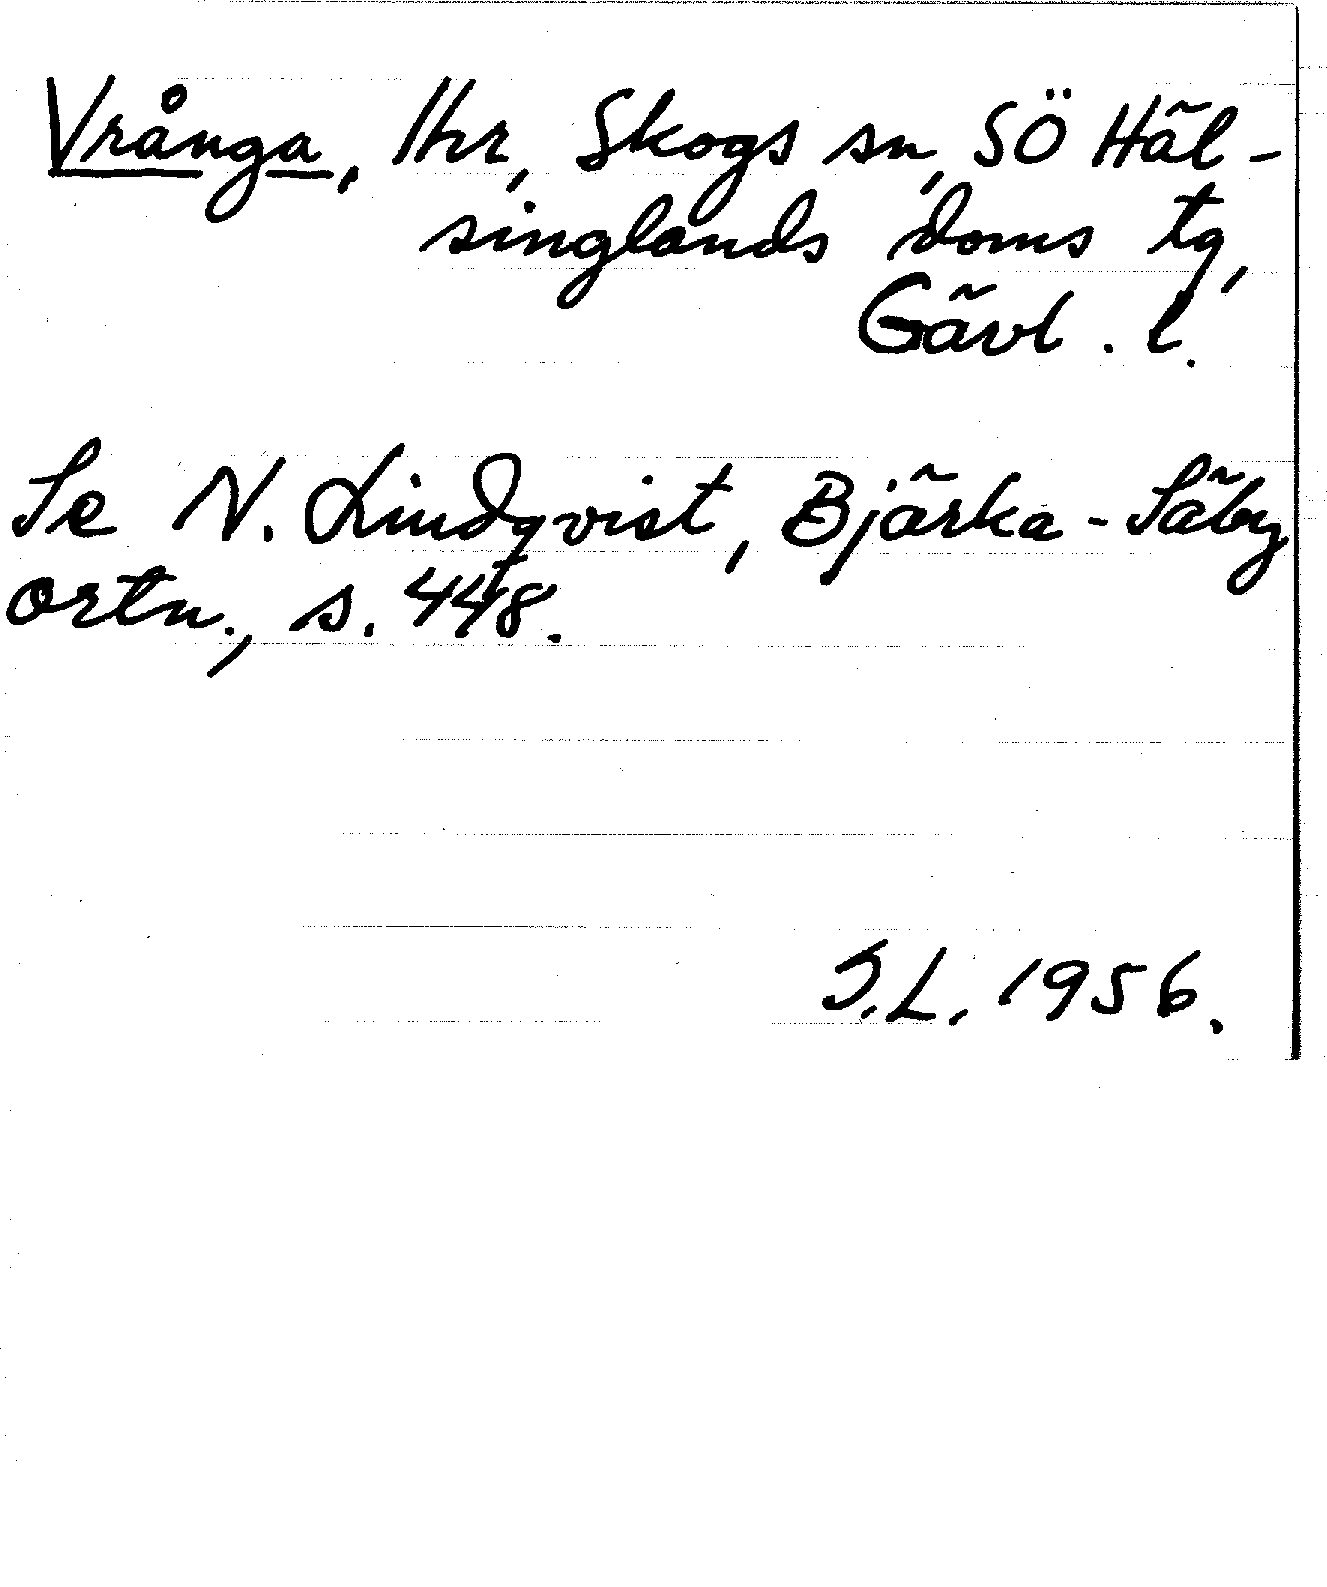 Vrånga, lhr, Skogs sn, SÖ Häl-
singlands doms tg,
Gävl. l.
Se N. Lindqvist, Bjärka-Säby
ortn., s. 448.
S.L. 1956.